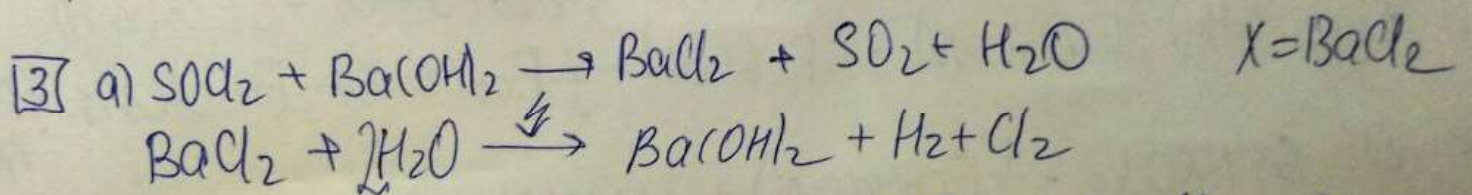 3 a) SOCl2 + Ba(OH)2 → BaCl2 + SO2 + H2O X=BaCl2
BaCl2 + 2H2O → Ba(OH)2 + H2 + Cl2